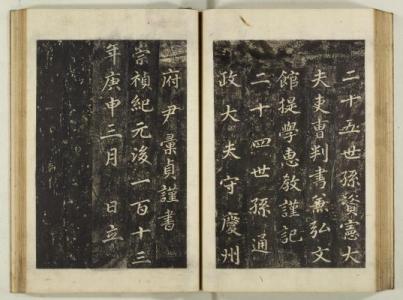 二十五世孫資憲大
夫吏曹判書兼弘文
館提學惠敎謹記
二十四世孫通
政大夫守慶州
府尹彙貞謹書
崇禎紀元後一百十三
年庚申三月 日立